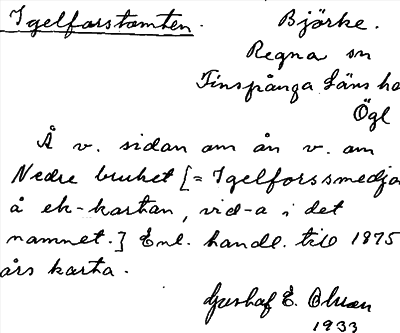 Igelforstomten. Björke.
Regna sn
Finspånga läns ha
Ögl
Å v. sidan om ån v. om
Nedre bruket [= Igelforssmedja
å ek-kartan, vid-a i det
namnet.] Enl. handl. till 1875
års karta.
Gustaf E. Olsson
1933